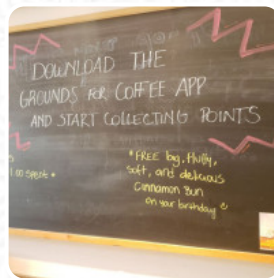 DOWNLOAD THE
GROUNDS FOR COFFEE APP
AND START COLLECTING POINTS
00 SPENT *
*FREE big, fluffy,
soft, and delicious
Cinnamon Bun
on your birthday